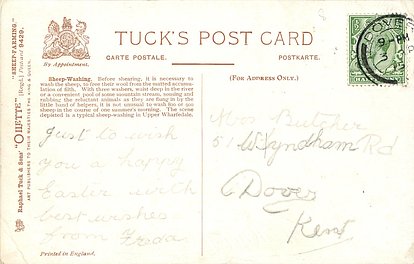 TUCK'S POST CARD
CARTE POSTALE. POSTKARTE.
By Appointment.
(FOR ADDRESS ONLY.)
Sheep-Washing. Before shearing, it is necessary to
wash the sheep, to free their wool from the matted accumu-
lation of filth. With three washers, waist deep in the river
or a convenient pool of some mountain stream, sousing and
rubbing the reluctant animals as they are flung in by the
little band of helpers, it is not unusual to wash 800 or 900
sheep in the course of one summer's morning. The scene
depicted is a typical sheep-washing in Upper Wharfedale.
Just to wish
you a happy
Easter with
best wishes
from Freda
Printed in England.
Raphael Tuck & Sons' "OILETTE" [Regd.] Postcard 9429.
"SHEEP-FARMING."
ART PUBLISHERS TO THEIR MAJESTIES THE KING & QUEEN.
DOVER
Butcher
51 Wyndham Rd
Dover
Kent